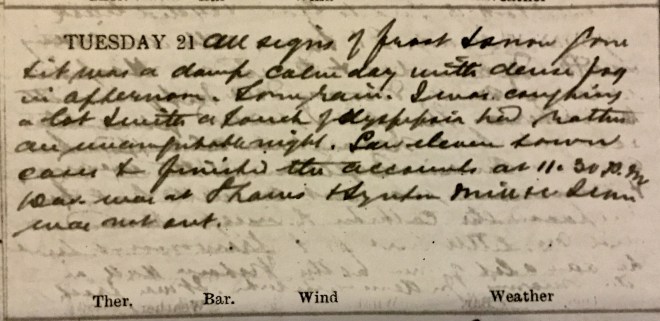 TUESDAY 21 All signs of frost & snow gone
& it was a damp calm day with dense fog
in afternoon. Some rain. I was coughing
a lot & with a touch of dyspepsia had rather
an uncomfortable night. Saw eleven town
cases & finished the accounts at 11.30 P.M
Dav. was at & Lynton
was not out.
Ther. Bar. Wind Weather